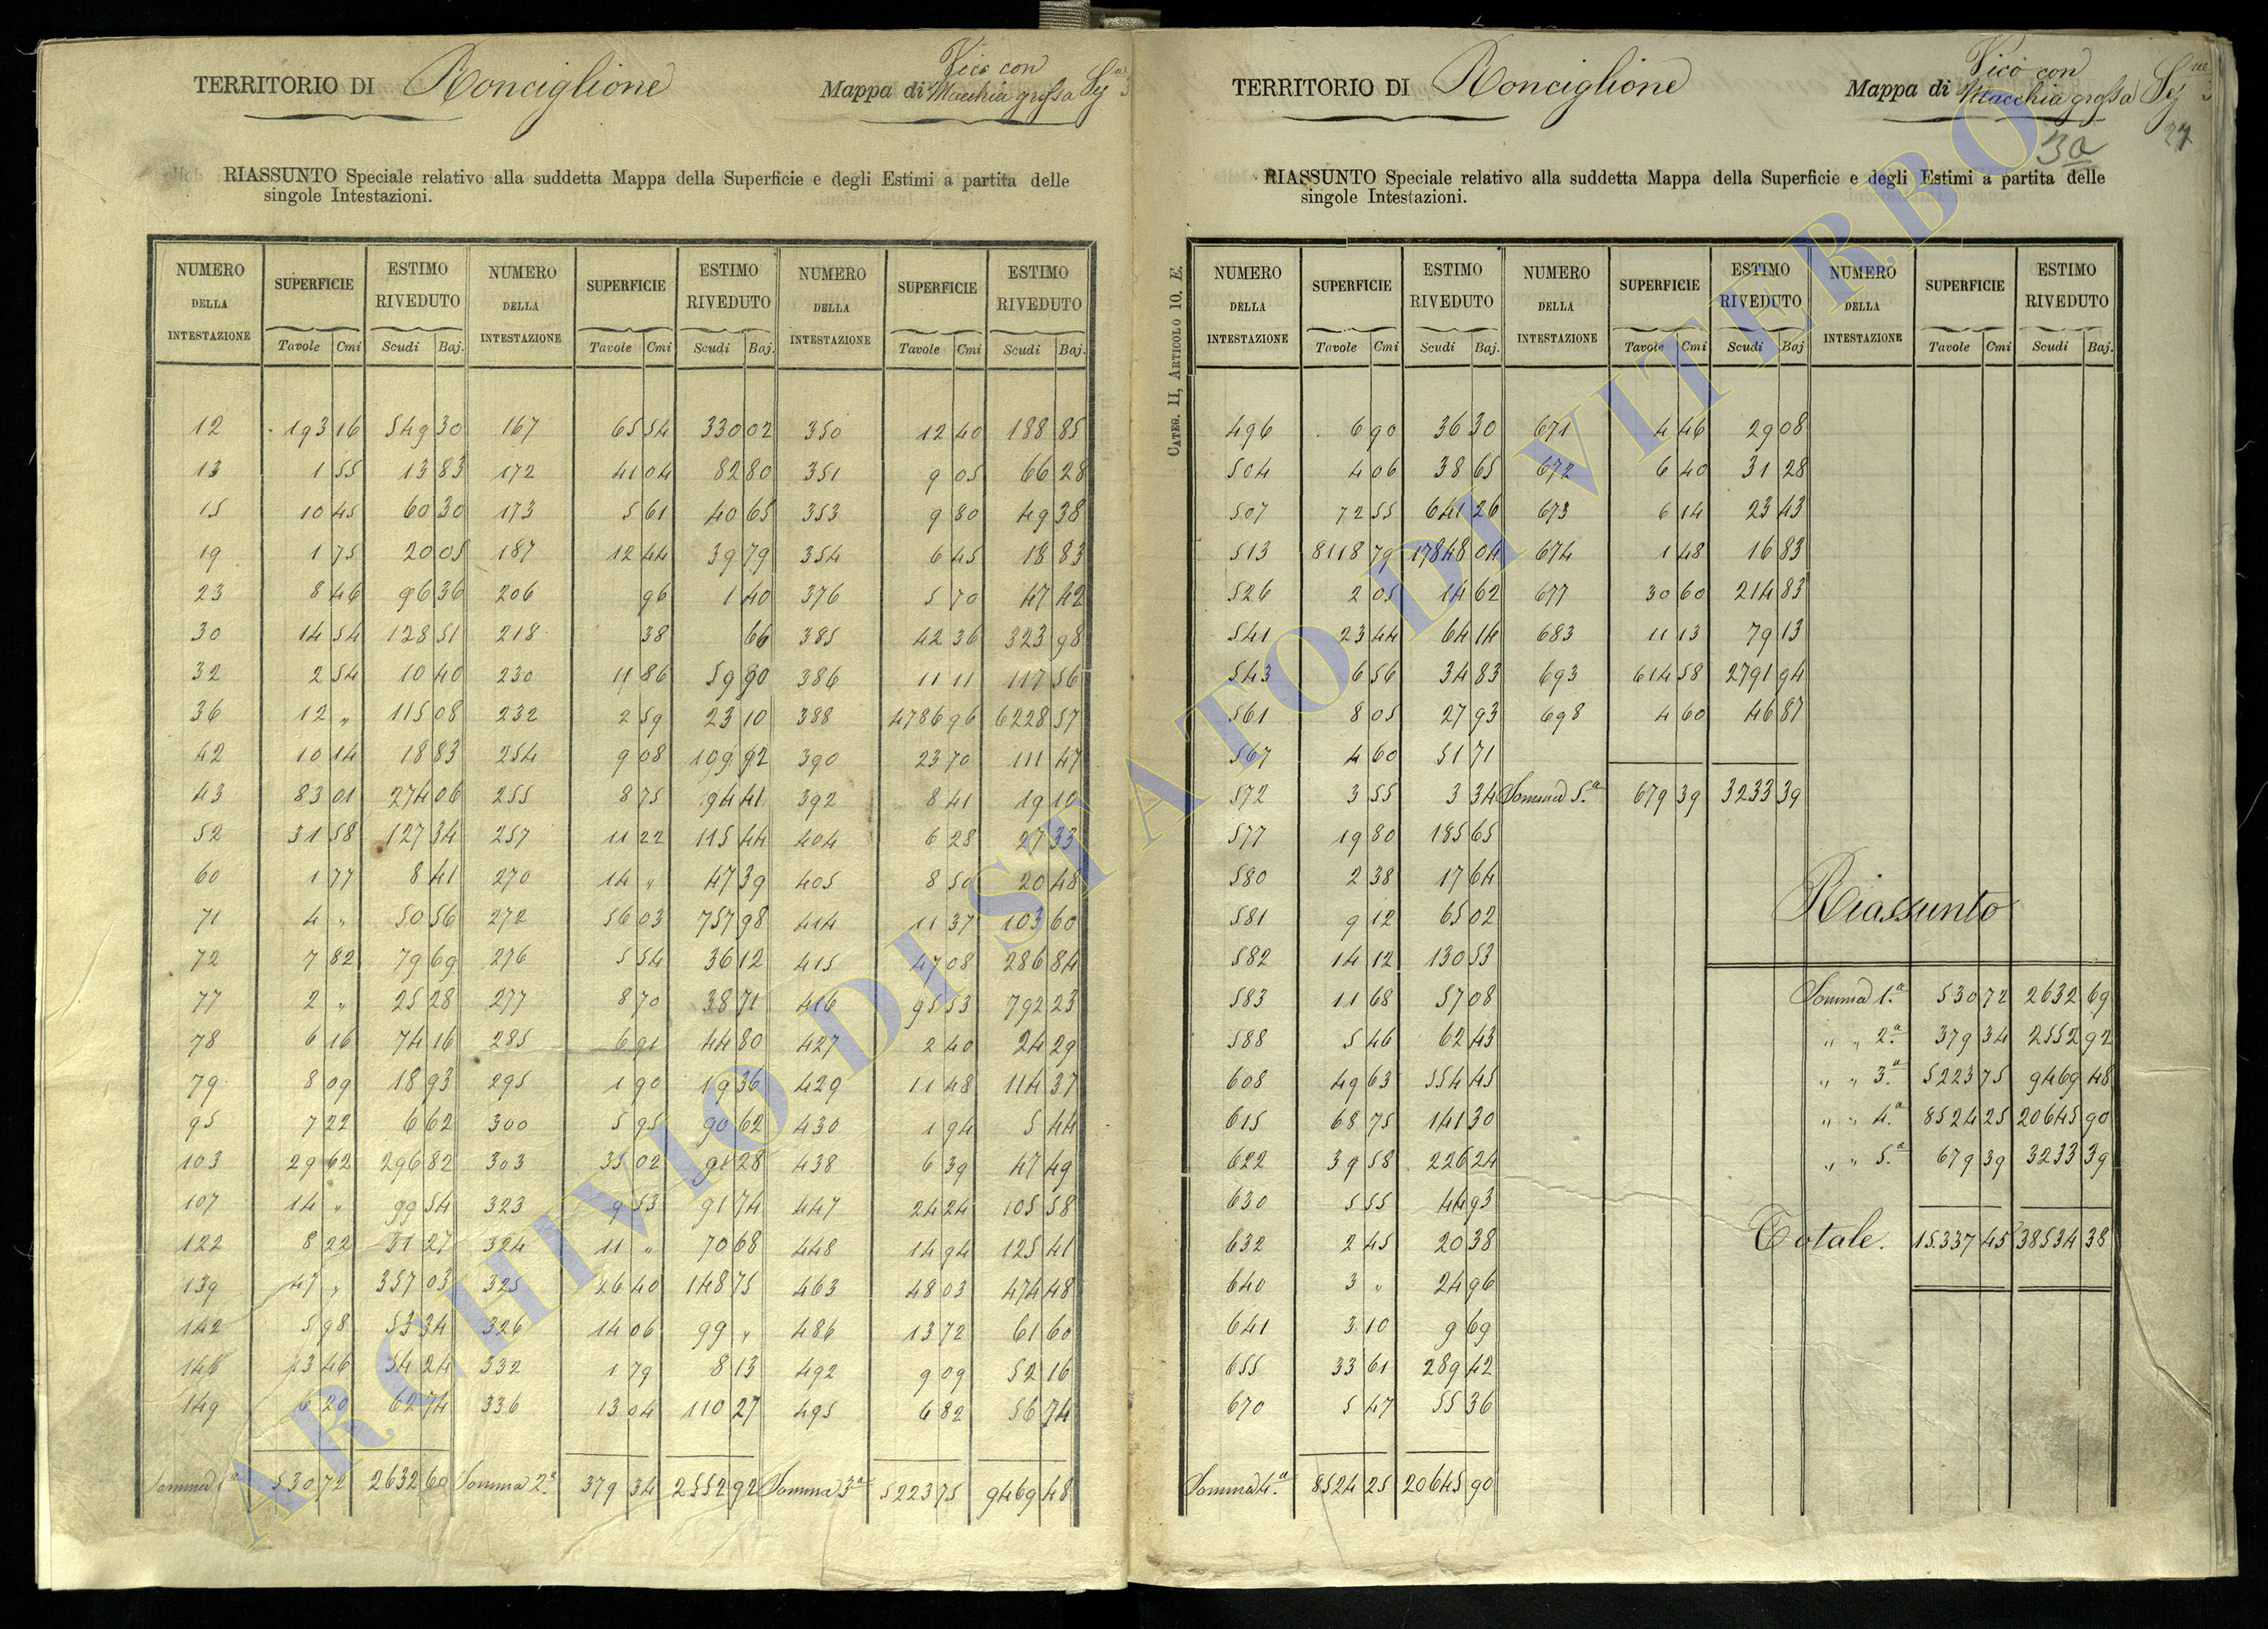 TERRITORIO DI Ronciglione
Mappa di Vico con
Macchia grossa Sez.ne 3
RIASSUNTO Speciale relativo alla suddetta Mappa della Superficie e degli Estimi a partita delle
singole Intestazioni.
NUMERO DELLA INTESTAZIONE SUPERFICIE ESTIMO RIVEDUTO NUMERO DELLA INTESTAZIONE SUPERFICIE ESTIMO RIVEDUTO NUMERO DELLA INTESTAZIONE SUPERFICIE ESTIMO RIVEDUTO
Tavole Cmi Scudi Baj. Tavole Cmi Scudi Baj. Tavole Cmi Scudi Baj.
12 193 16 549 30 167 65 54 330 02 350 12 40 188 85
13 1 55 13 83 172 41 04 82 80 351 9 05 66 28
15 10 45 60 30 173 5 61 40 65 353 9 80 49 38
19 1 75 20 05 187 12 44 39 79 354 6 45 18 83
23 8 46 96 36 206 96 1 40 376 5 70 47 42
30 14 54 128 51 218 38 66 385 42 36 323 98
32 2 54 10 40 230 11 86 59 90 386 11 11 117 56
36 12 „ 115 08 232 2 59 23 10 388 4786 96 6228 57
42 10 14 18 83 254 9 08 109 92 390 23 70 111 47
43 83 01 274 06 255 8 75 94 41 392 8 41 19 10
52 31 58 127 34 257 11 22 115 44 404 6 28 27 33
60 1 77 8 41 270 14 „ 47 39 405 8 50 20 48
71 4 „ 50 56 272 56 03 757 98 414 11 37 103 60
72 7 82 79 69 276 5 54 36 12 415 47 08 286 84
77 2 „ 25 28 277 8 70 38 71 416 95 53 792 23
78 6 16 74 16 285 6 91 44 80 427 2 40 24 29
79 8 09 18 93 295 1 90 19 36 429 11 48 114 37
95 7 22 6 62 300 5 95 90 62 430 1 94 5 44
103 29 62 296 82 303 35 02 91 28 438 6 39 47 49
107 14 „ 99 54 323 9 53 91 74 447 24 24 105 58
122 8 22 31 27 324 11 „ 70 68 448 14 94 125 41
139 47 „ 357 03 325 26 40 148 75 463 48 03 474 48
142 5 98 53 34 326 14 06 99 „ 486 13 72 61 60
146 13 46 54 24 332 1 79 8 13 492 9 09 52 16
149 6 20 62 74 336 13 04 110 27 495 6 82 56 74
Somma 1.a 530 72 2632 69 Somma 2.a 379 34 2552 92 Somma 3.a 5223 75 9469 48
TERRITORIO DI Ronciglione
Mappa di Vico con
Macchia grossa Sez.ne 3
30
RIASSUNTO Speciale relativo alla suddetta Mappa della Superficie e degli Estimi a partita delle
singole Intestazioni.
CATEG. II, ARTICOLO 10, E.
NUMERO DELLA INTESTAZIONE SUPERFICIE ESTIMO RIVEDUTO NUMERO DELLA INTESTAZIONE SUPERFICIE ESTIMO RIVEDUTO NUMERO DELLA INTESTAZIONE SUPERFICIE ESTIMO RIVEDUTO
Tavole Cmi Scudi Baj. Tavole Cmi Scudi Baj Tavole Cmi Scudi Baj.
496 6 90 36 30 671 4 46 29 08
504 4 06 38 65 672 6 40 31 28
507 72 55 641 26 673 6 14 23 43
513 8118 79 17848 04 674 1 48 16 83
526 2 05 14 62 677 30 60 214 83
541 23 44 64 14 683 11 13 79 13
543 6 56 34 83 693 614 58 2791 94
561 8 05 27 93 698 4 60 46 87
567 4 60 51 71
572 3 55 3 34 Somma 5.a 679 39 3233 39
577 19 80 185 65
580 2 38 17 64
581 9 12 65 02
582 14 12 130 53
583 11 68 57 08
588 5 46 62 43
608 49 63 554 45
615 68 75 141 30
622 39 58 226 24
630 5 55 44 93
632 2 45 20 38
640 3 „ 24 96
641 3 10 9 69
655 33 61 289 42
670 5 47 55 36
Somma 4.a 8524 25 20645 90
Riassunto
Somma 1.a 530 72 2632 69
„ „ 2.a 379 34 2552 92
„ „ 3.a 5223 75 9469 48
„ „ 4.a 8524 25 20645 90
„ „ 5.a 679 39 3233 39
Totale. 15.337 45 38534 38
ARCHIVIO DI STATO DI VITERBO